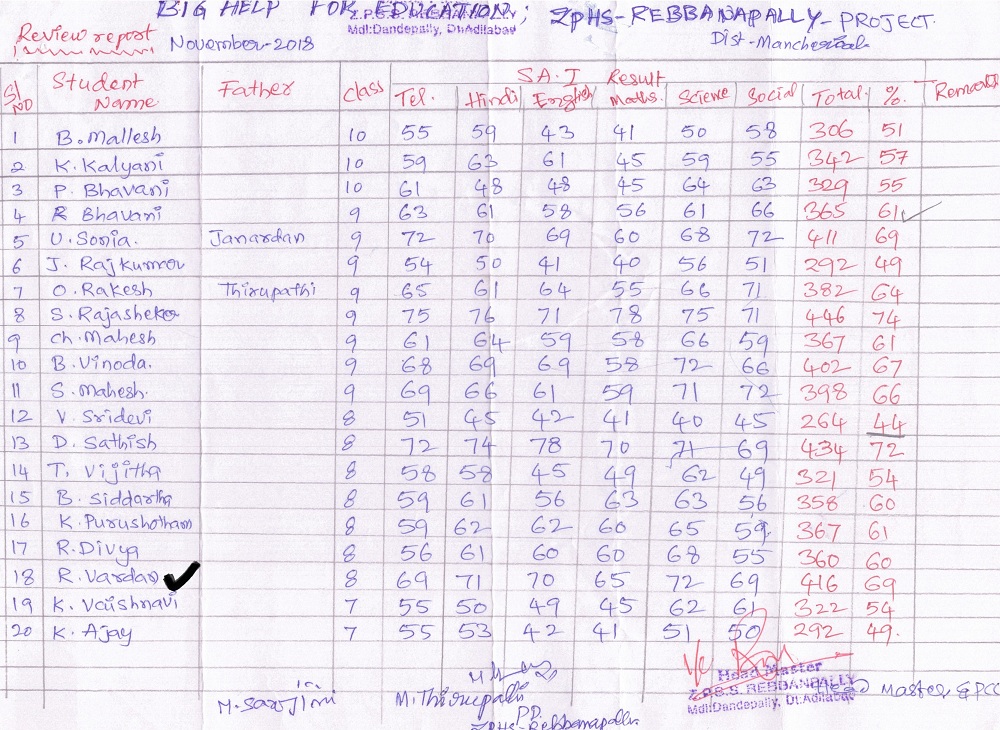 BIG HELP FOR EDUCATION; ZPHS-REBBANAPALLY-PROJECT.
Z.P.S.S. REBBANPALLY
Mdl:Dandepally, Dt:Adilabad
Dist-Mancherial
Review report November-2018
SA.I Result
Sl NO Student Name Father class Tel. Hindi English Maths. Science Social Total %. Remark
1 B.Mallesh 10 55 59 43 41 50 58 306 51
2 K.Kalyani 10 59 63 61 45 59 55 342 57
3 P. Bhavani 10 61 48 48 45 64 63 329 55
4 R Bhavani 9 63 61 58 56 61 66 365 61
5 U.Sonia. Janardan 9 72 70 69 60 68 72 411 69
6 J. Rajkumar 9 54 50 41 40 56 51 292 49
7 O.Rakesh Thirupathi 9 65 61 64 55 66 71 382 64
8 S.Rajasheker 9 75 76 71 78 75 71 446 74
9 Ch.Mahesh 9 61 64 59 58 66 59 367 61
10 B.Vinoda. 9 68 69 69 58 72 66 402 67
11 S.Mahesh. 9 69 66 61 59 71 72 398 66
12 V. Sridevi 8 51 45 42 41 40 45 264 44
13 D. Sathish 8 72 74 78 70 71 69 434 72
14 T. Vijitha 8 58 58 45 49 62 49 321 54
15 B. Siddartha 8 59 61 56 63 63 56 358 60
16 K.Purushotham 8 59 62 62 60 65 59 367 61
17 R.Divya 8 56 61 60 60 68 55 360 60
18 R.Vardan 8 69 71 70 65 72 69 416 69
19 K. Vaishnavi 7 55 50 49 45 62 61 322 54
20 K. Ajay 7 55 53 42 41 51 50 292 49.
M.Sarojini
M.Thirupathi
P.D.
ZPHS-Rebbanapally
Head Master
Z.P.S.S. REBBANPALLY
Mdl:Dandepally, Dt:Adilabad
Head Master &PCC